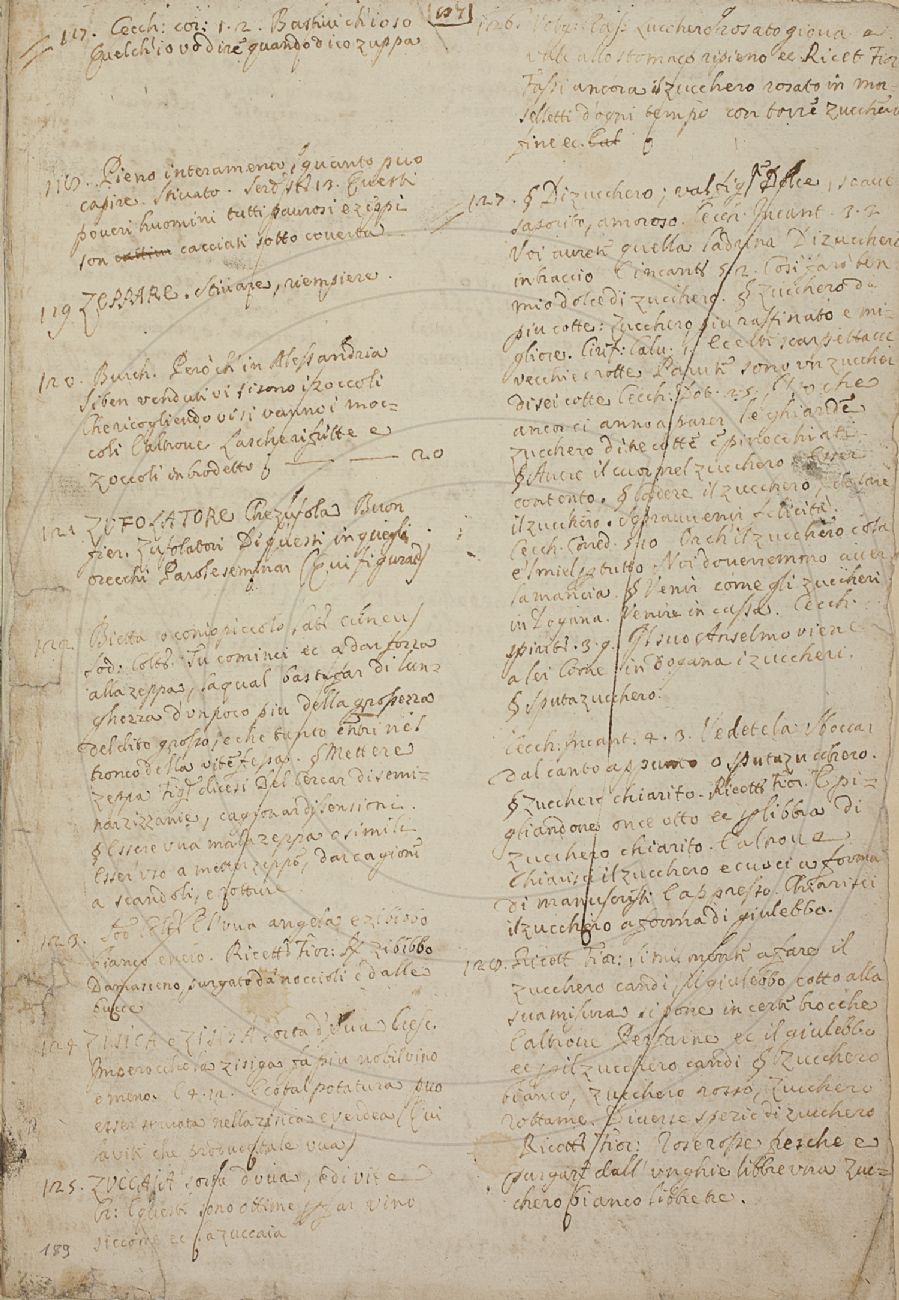 117. Cecch: cor: 1. 2. Bastivi ch'io so
Quelch'io vo dire quando dico zuppa
Pieno interamente, quanto può
capire. Stivato. 13. Questi
poveri huomini tutti paurosi e zeppi
son cacciati sotto coverta
119 ZEPPARE. Stivare, riempiere.
120. Burch. Però ch'in Alessandria
si ben venduti vi sono i zoccoli
che ricogliendo vi si vanno i moc=
coli Caltrove Lascherai fritte e
zoccoli in brodetto 20
121 ZUFOLATORE Che zufola Buon
fier. Zufolatori Di questi in quegli
orecchi Parole seminar (Qui figurat)
122. Bietta o conio piccolo, lat. cuneus
Sod: Colt. Tu cominci ec a dar forza
alla zeppa, la qual basterà di lun=
ghezza d'un poco più della grossezza
del dito grosso, e che tanto entri nel
tronco della vite fessa. § Mettere
zeppa fig. dicesi Del cercar di semi=
nar zizzanie, cagionar dissensioni.
§ Essere una mala zeppa e simili
Esser uso a metter zeppe, dar cagione
a scandoli, e rotture
123. Sod. Colt. uva angela e zibibbo
bianco e nero. Ricett. Fior: zibibbo
Damasceno, purgato da noccioli e dalle
bucce
124 ZISICA e ZISIGA sorta d'uva Cresc.
Imperocchè la zisiga fa più nobil vino
e meno. C 4. 12. Cotal potatura può
esser servata nella zisica e verdea (Qui
a viti che producono tale uva)
125. ZUCCAIA sorta d'uva, e di vite
Questi sono ottime per far vino
siccome ec. la zuccaia
[127]
126. zucchero rosato giova e
vale allo stomaco ripieno ec. Ricett Fior
Fassi ancora il zucchero rosato in mor=
selletti d'ogni tempo con torre zucchero
fine ec.
127. § Di zucchero; val fig. Dolce, soave
saporito, amoroso. Cecch. Incant. 3. 2
Voi avrete quella ladrina Di zucchero
in braccio E incant. 5. 2. Così farò ben
mio dolce di zucchero. § Zucchero di
più cotte: Zucchero più raffinato e mi=
gliore. Ciriff: Calv: E certi scarpettacci
vecchie e rotte Paruti sono un zuccher
di sei cotte Cecch: Dot. 2. 5.
ancor ci anno a parer le ghiande
zucchero di tre cotte e pinocchiati
§ Avere il cuor nel zucchero Esser
contento. § Godere il zucchero,
il zucchero. Sopravvenir felicità.
Cecch. Or ch'il zucchero cola
e 'l miel per tutto Noi dovremmo aver
la mancia. § Venir come gli zuccheri
in Dogana. Venire in cassa. Cecch.
spirit. 3. 9. Il suo Anselmo viene
a lei Come in dogana i zuccheri.
§ Sputa zucchero:
Cecch. Incant: 4. 3. Vedetela Sboccar
dal canto appunto o sputazucchero.
§ Zucchero chiarito. Ricett. Fior. E pi=
gliandone once otto ec libbra di
zucchero chiarito. Caltrove
Chiarisci il zucchero e cuoci a forma
di manuscristi E appresso. Chiarisci
il zucchero a forma di giulebbo.
128. Ricett. Fior: a fare il
zucchero candi, il giulebbo cotto alla
sua misura si pone in certe brocche
Caltrove Per farne ec il giulebbo
ec. per il zucchero candi § Zucchero
bianco, zucchero rosso, Zucchero
rottame. Diverse spezie di zucchero
Ricett. Fior: Rose rosse fresche e
purgate dall'unghie libbre una zuc=
chero bianco libbre tre.
189